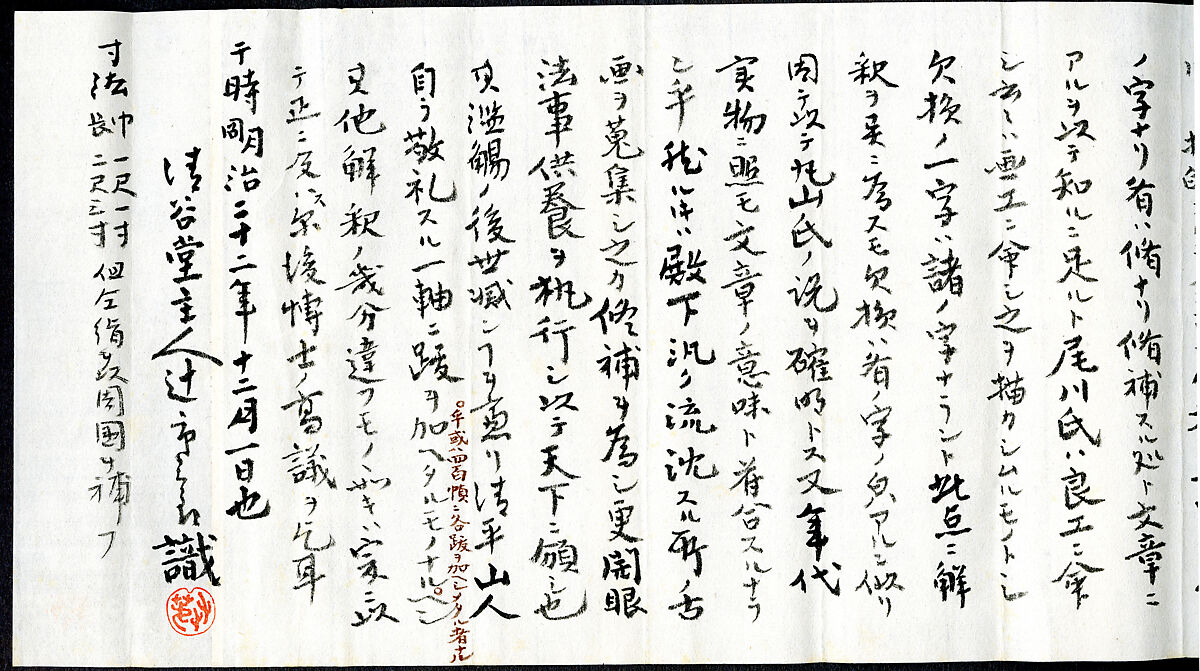 ノ字ナリ省ハ脩ナリ脩補スル処ト文章ニ
アルヲ以テ知ルニ足ルト尾川氏ハ良工ニ命
シ云々ハ画工ニ命シ之ヲ描カシムルモノトシ
欠損ノ一字ハ諸ノ字ナラント此点ニ解
釈ヲ異ニ為スモ欠損ハ省ノ字ノ
因テ以テ丸山氏ノ説ヲ確明トス又年代
実物ニ照モ文章ノ意味ト符合スルナラ
ン乎然ルハ殿下汎ク流沈スル所ノ古
画ヲ蒐集シ之カ修補ヲ為シ更開眼
法事供養ヲ執行シ以テ天下ニ頒シ也
其濫觴ノ後世滅シ清平山人
自ラ敬礼スル一軸ニ跋ヲ加ヘタルモノナルヘシ
○乎或ハ四百幀ニ各跋ヲ加ヘシメタル者
其他解釈ノ幾分違フモノ如キハ宜以
テ正ニ後博士ノ高議ヲ乞耳
于時明治二十二年十二月一日也
清谷堂主人辻 識
寸法 巾一尺一寸 長二尺三寸